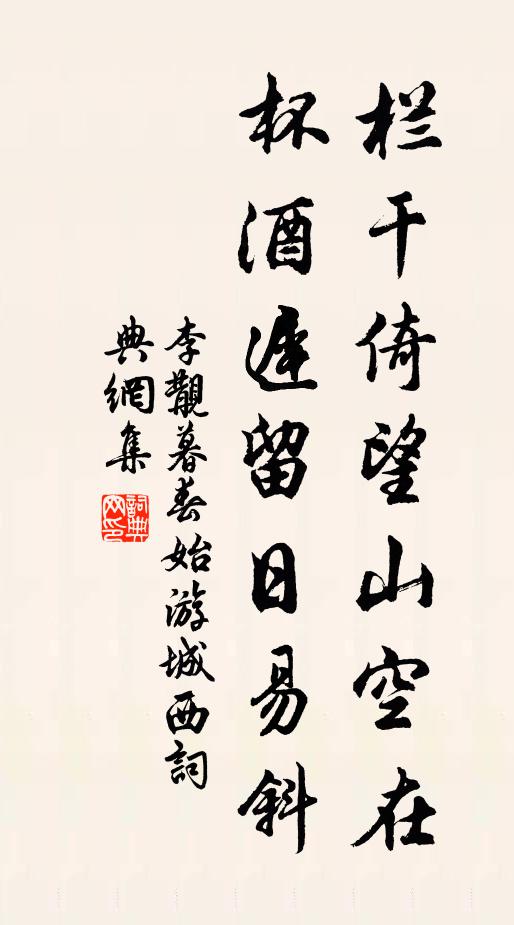 栏干倚望山空在
杯酒遲留日易斜
李觀暮春始游城西詞
典網集
詞典
网印